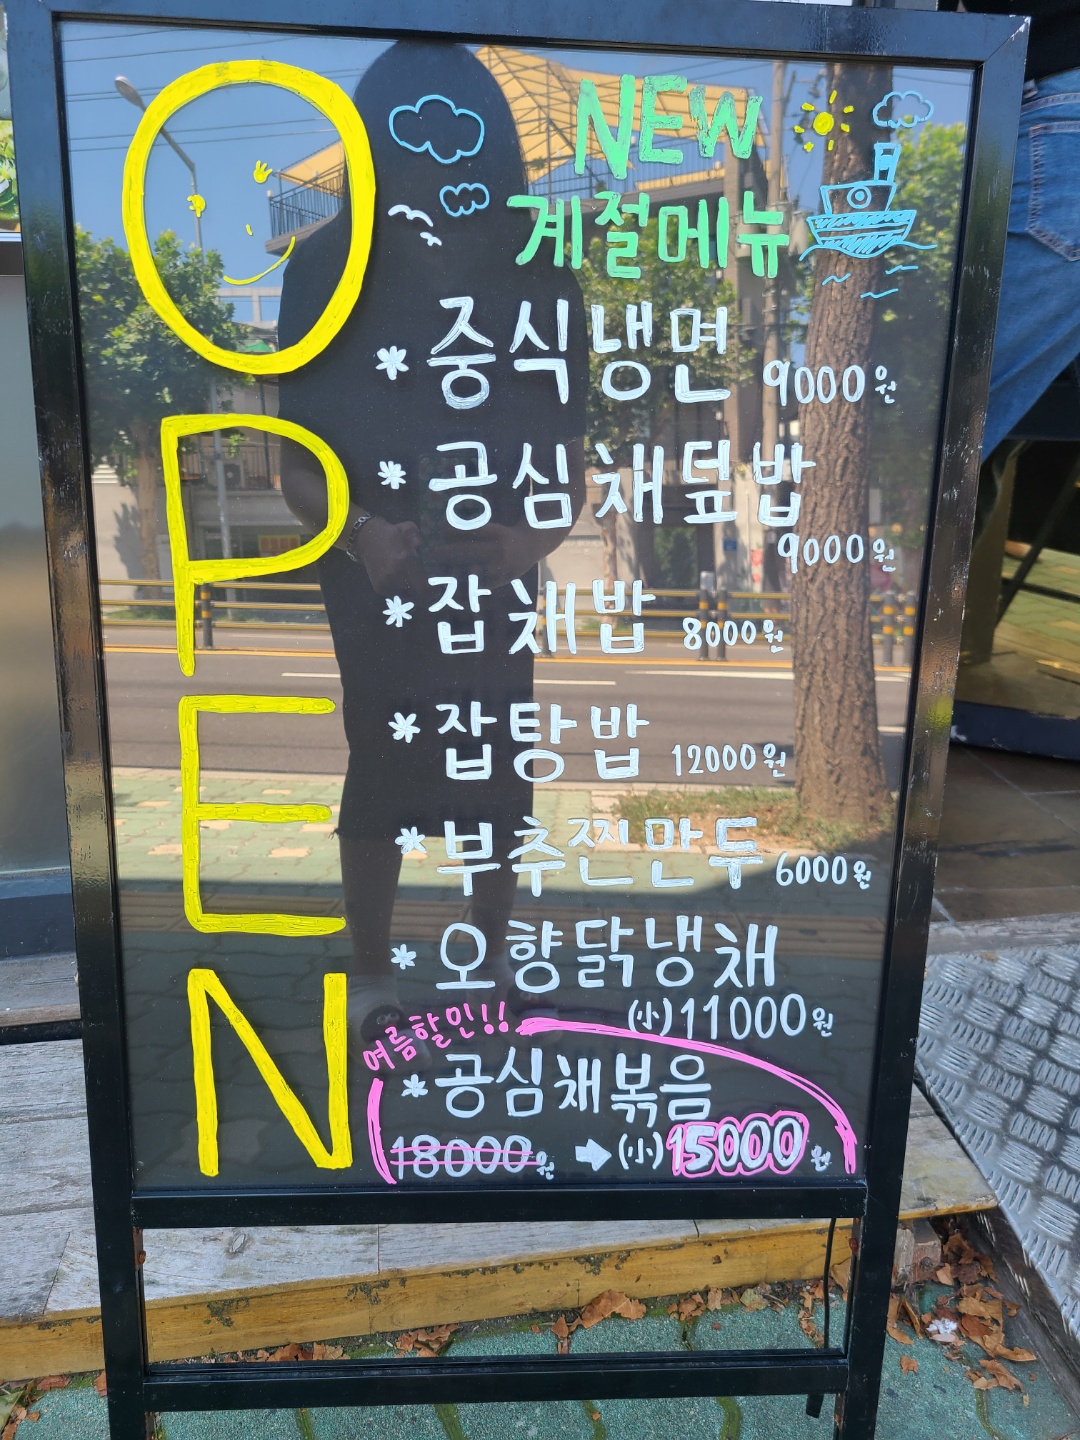 OPEN
NEW
계절메뉴
* 중식냉면 9000원
* 공심채덮밥
9000원
* 잡채밥 8000원
* 잡탕밥 12000원
* 부추찐만두 6000원
* 오향닭냉채
(小)11000원
여름할인!!
* 공심채볶음
18000원 → (小)15000원